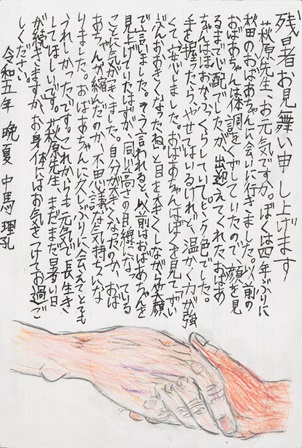 残暑お見舞い申し上げます
萩原先生、お元気ですか。ぼくは四年ぶりに
秋田のおばあちゃんに会いに行きました。久前の
おばあちゃんは体調をくずしていたので、顔を見
るまで心配でしたが、出迎えてくれたおばあ
ちゃんはほおがふっくらしていて、ピンク色でした。
手を握ったら、やせてはいるけれど、温かく力が強
くて、安心しました。おばあちゃんはぼくを見て「ずい
ぶんおおきくなったね。」と目を大きくしながら笑顔
で言いました。そう言われると、以前はおばあちゃんを
見上げていたはずが、同じ高さの目線になっている
ことに気がきました。自分が大きくなったのか、おば
あちゃんが縮んだのか、不思議な気持ちにな
りました。おばあちゃんに久しぶりに会えてとても
うれしかったです。これからも元気で長生き
してほしいです。萩原先生、まだまだ暑い日
が続きますが、お身体にはお気をつけてお過ご
しください。
令和五年 晩夏 中馬 理孔